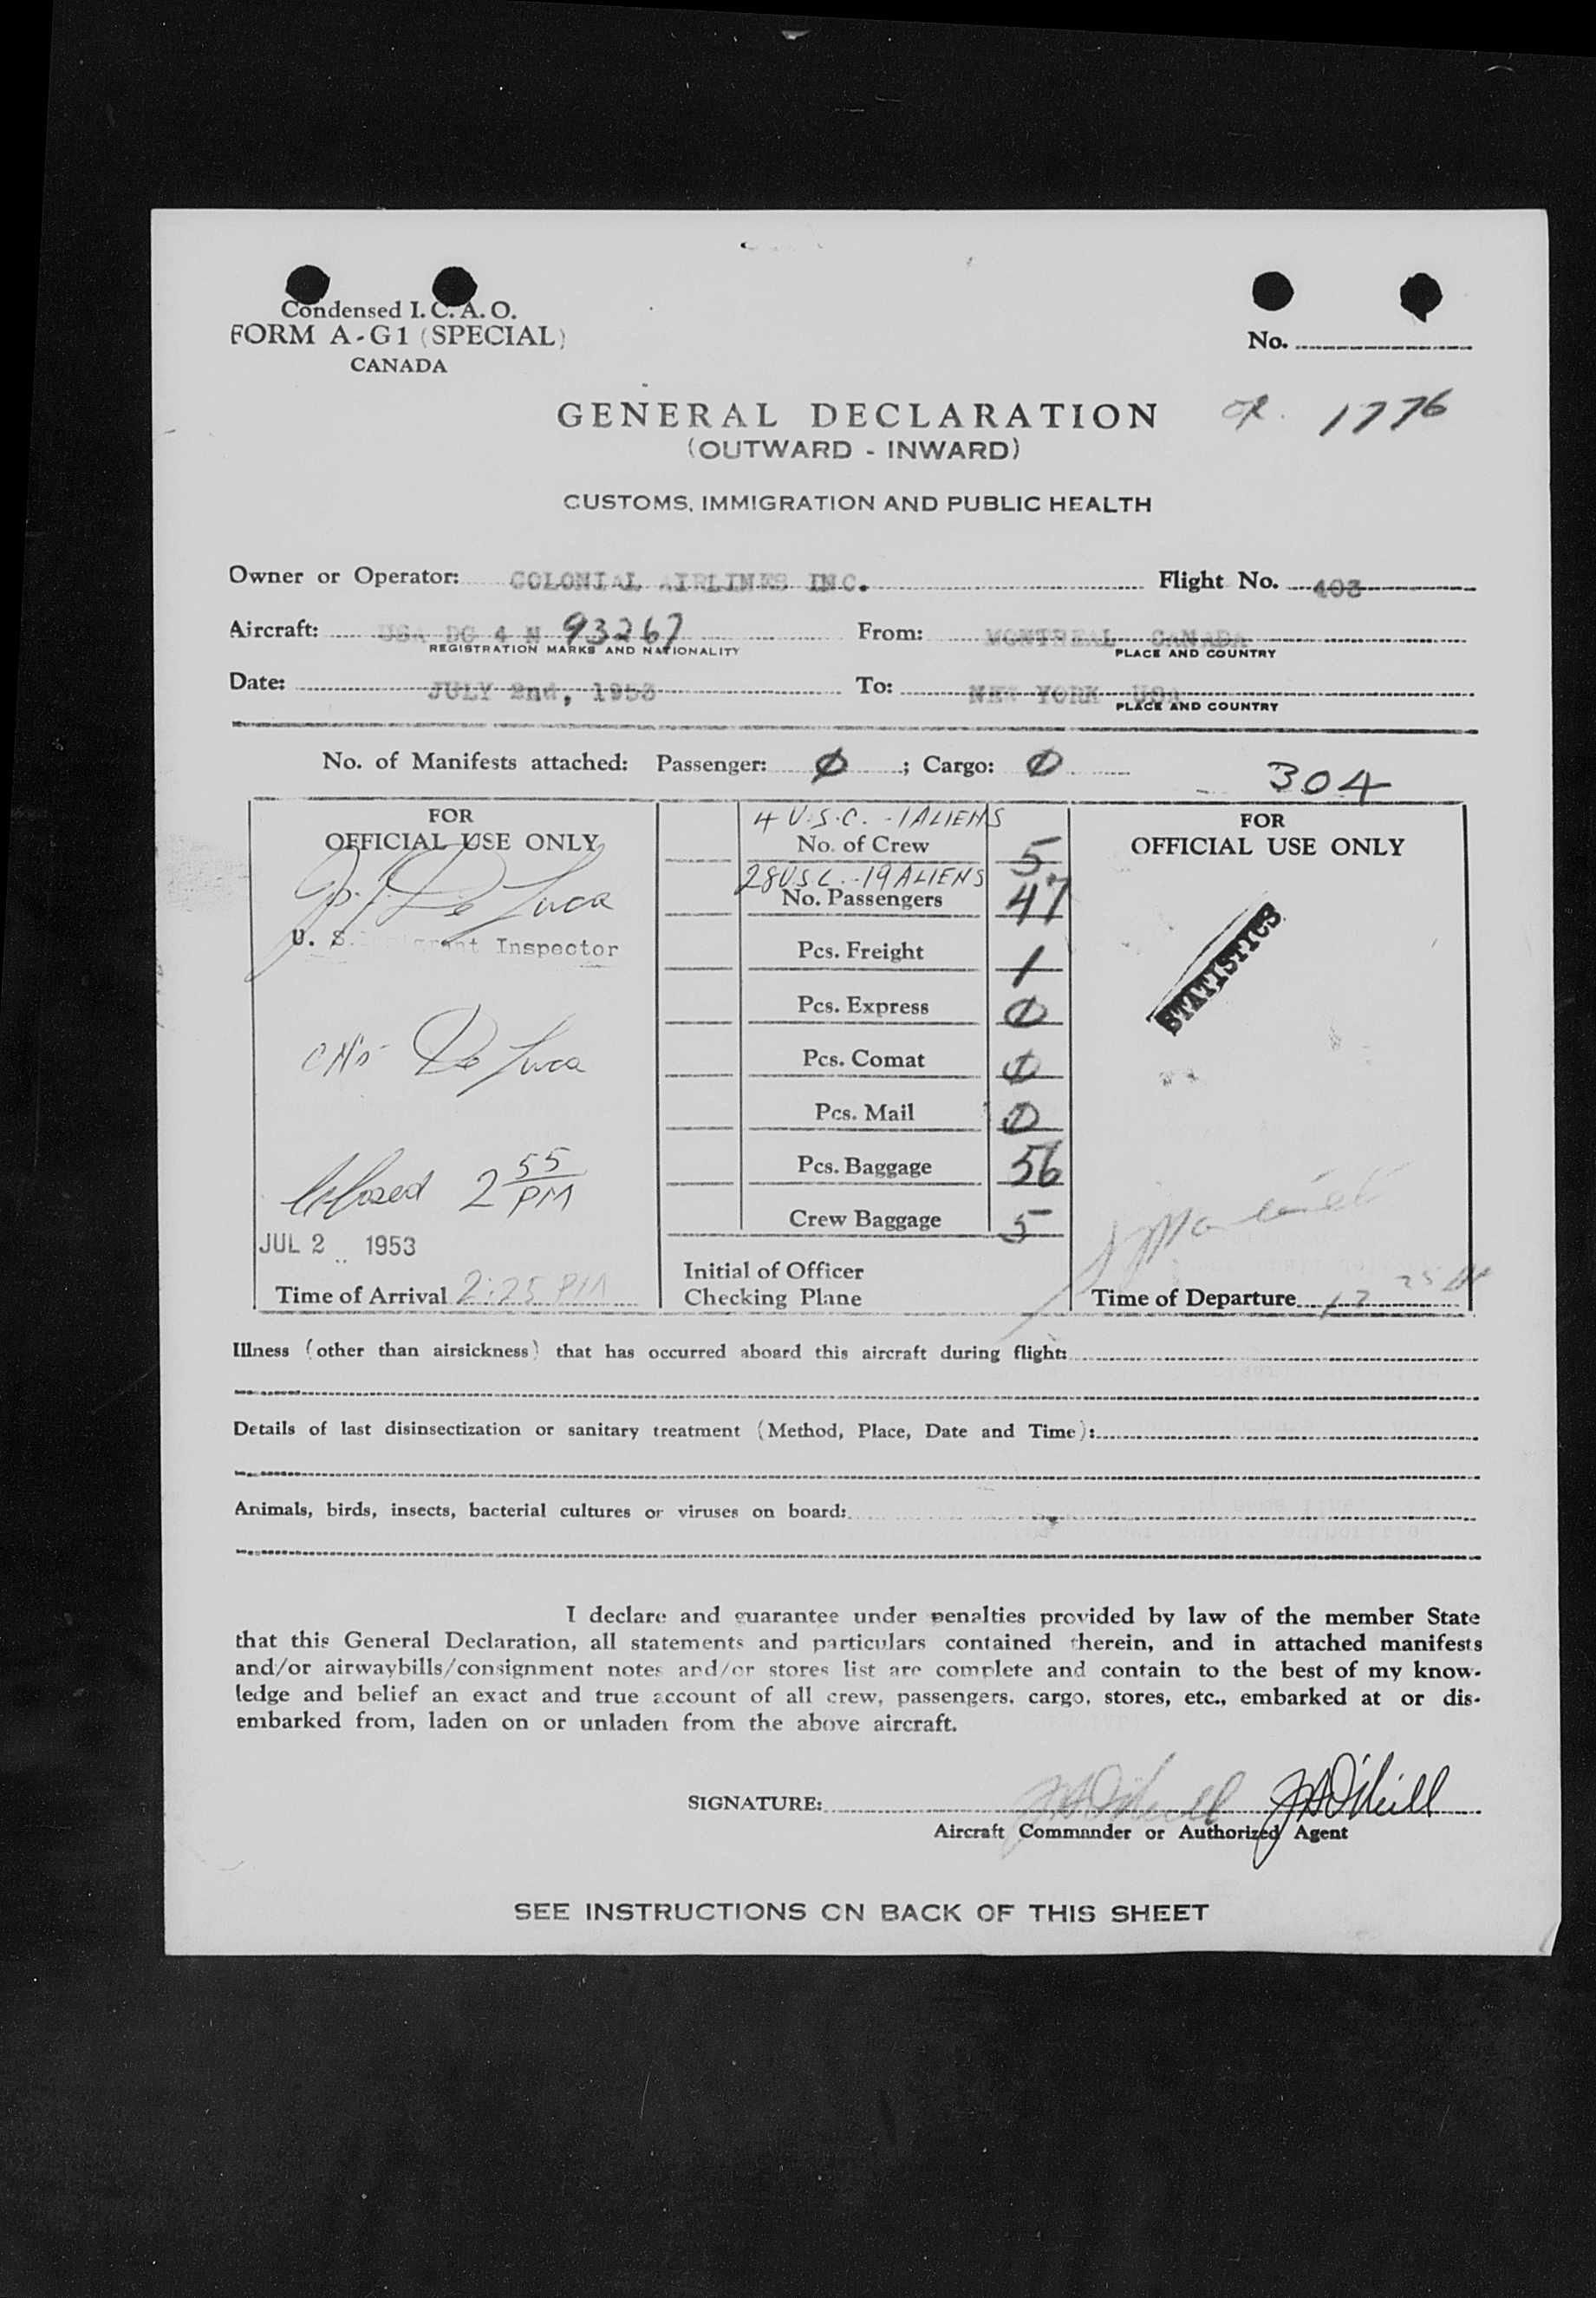 Condensed I. C. A. O.
FORM A-G1 (SPECIAL)
CANADA
No.
1776
GENERAL DECLARATION
(OUTWARD - INWARD)
CUSTOMS, IMMIGRATION AND PUBLIC HEALTH
Owner or Operator: COLONIAL AIRLINES INC. Flight No. 403
Aircraft: USA DC 4 N 93267 From: MONTREAL CANADA
REGISTRATION MARKS AND NATIONALITY PLACE AND COUNTRY
Date: JULY 2nd, 1953 To: NEW YORK USA
PLACE AND COUNTRY
No. of Manifests attached: Passenger: 0 ; Cargo: 0
304
FOR
OFFICIAL USE ONLY
De Luca
U. S. Inspector
De Luca
2 55
PM
JUL 2 1953
Time of Arrival 2:25 PM
4 U.S.C. - 1 ALIENS
No. of Crew 5
28 U.S.C. - 19 ALIENS
No. Passengers 47
Pcs. Freight 1
Pcs. Express 0
Pcs. Comat 0
Pcs. Mail 0
Pcs. Baggage 56
Crew Baggage 5
Initial of Officer
Checking Plane
FOR
OFFICIAL USE ONLY
STATISTICS
Time of Departure
Illness (other than airsickness) that has occurred aboard this aircraft during flight:
Details of last disinsectization or sanitary treatment (Method, Place, Date and Time):
Animals, birds, insects, bacterial cultures or viruses on board:
I declare and guarantee under penalties provided by law of the member State
that this General Declaration, all statements and particulars contained therein, and in attached manifests
and/or airwaybills/consignment notes and/or stores list are complete and contain to the best of my know-
ledge and belief an exact and true account of all crew, passengers, cargo, stores, etc., embarked at or dis-
embarked from, laden on or unladen from the above aircraft.
SIGNATURE: J A O'Neill J A O'Neill
Aircraft Commander or Authorized Agent
SEE INSTRUCTIONS ON BACK OF THIS SHEET